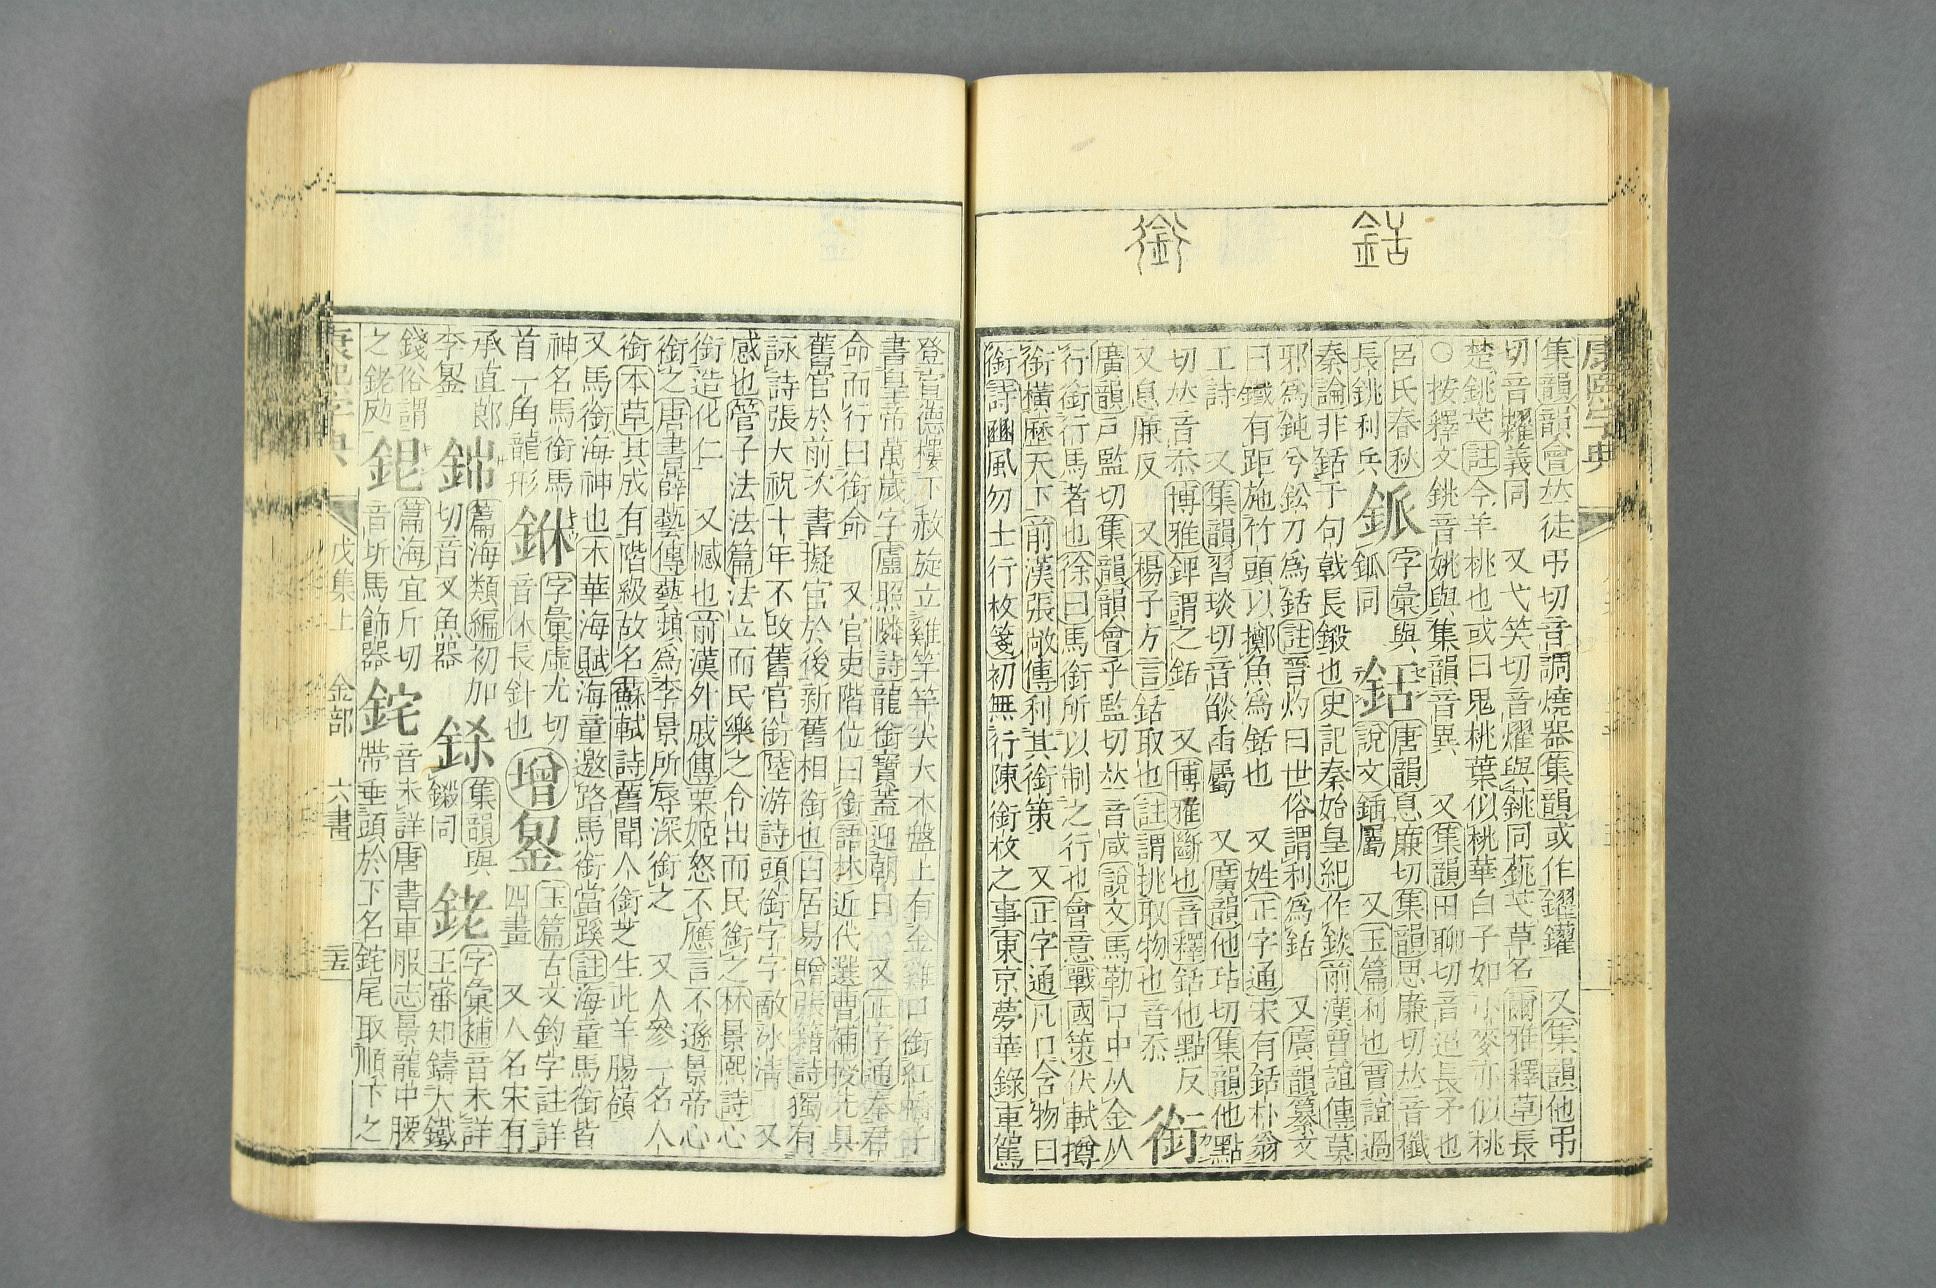 銛
銜
康熙字典
集韻韻會𠀤徒弔切音調燒器集韻或作䥶鑃 又集韻他弔
切音糶義同 又弋笑切音燿與銚同銚芅草名爾雅釋草長
楚銚芅註今羊桃也或曰鬼桃葉似桃華白子如小麥亦似桃
○按釋文銚音姚與集韻音異 又集韻田聊切音迢長矛也
呂氏春秋
長銚利兵
鈵
字彙與
鈲同
銛
唐韻息廉切集韻思廉切𠀤音纖
說文鍤屬 又玉篇利也賈誼過
秦論非銛于句戟長鎩也史記秦始皇紀作錟前漢賈誼傳莫
邪爲鈍兮鉛刀爲銛註晉灼曰世俗謂利爲銛 又廣韻纂文
曰鐵有距施竹頭以擲魚爲銛也 又姓正字通宋有銛朴翁
工詩 又集韻習琰切音䭕臿屬 又廣韻他玷切集韻他點
切𠀤音忝博雅鈽謂之銛 又博雅斷也音釋銛他點反
又息廉反 又楊子方言銛取也註謂挑取物也音忝
銜
廣韻戸監切集韻韻會乎監切𠀤音咸說文馬勒口中从金从
行銜行馬者也徐曰馬銜所以制之行也會意戰國策伏軾撙
銜橫歷天下前漢張敞傳利其銜策 又正字通凡口含物曰
銜詩豳風勿士行枚箋初無行陳銜枚之事東京夢華錄車駕
登宣德樓下赦旋立雞竿竿尖大木盤上有金雞口銜紅幡子
書皇帝萬歲字盧照鄰詩龍銜寶蓋迎朝日 又正字通奉君
命而行曰銜命 又官吏階位曰銜語林近代選曹補授先具
舊官於前次書擬官於後新舊相銜也白居易贈張籍詩獨有
詠詩張太祝十年不改舊官銜陸游詩頭銜字字敵冰清 又
感也管子法法篇法立而民樂之令出而民銜之林景熙詩心
銜造化仁 又憾也前漢外戚傳栗姬怒不應言不遜景帝心
銜之唐書薛藝傳藝頻爲李景所辱深銜之 又人參一名人
銜本草其成有階級故名蘇軾詩舊聞人銜芝生此羊腸嶺
又馬銜海神也木華海賦海童邀路馬銜當蹊註海童馬銜皆
神名馬銜馬
首一角龍形
銝
字彙虛尤切
音休長針也
增
䤤
玉篇古文鈞字註詳
四畫 又人名宋有
承直郎
李䤤
䤮
篇海類編初加
切音叉魚器
䤭
集韻與
鎩同
銠
字彙補音未詳
王審知鑄大鐵
錢俗謂
之銠𠛎
䤯
篇海宜斤切
音圻馬飾器
䤩
音未詳唐書車服志景龍中腰
帶垂頭於下名䤩尾取順下之
康熙字典 戌集上 金部 六畫 二五